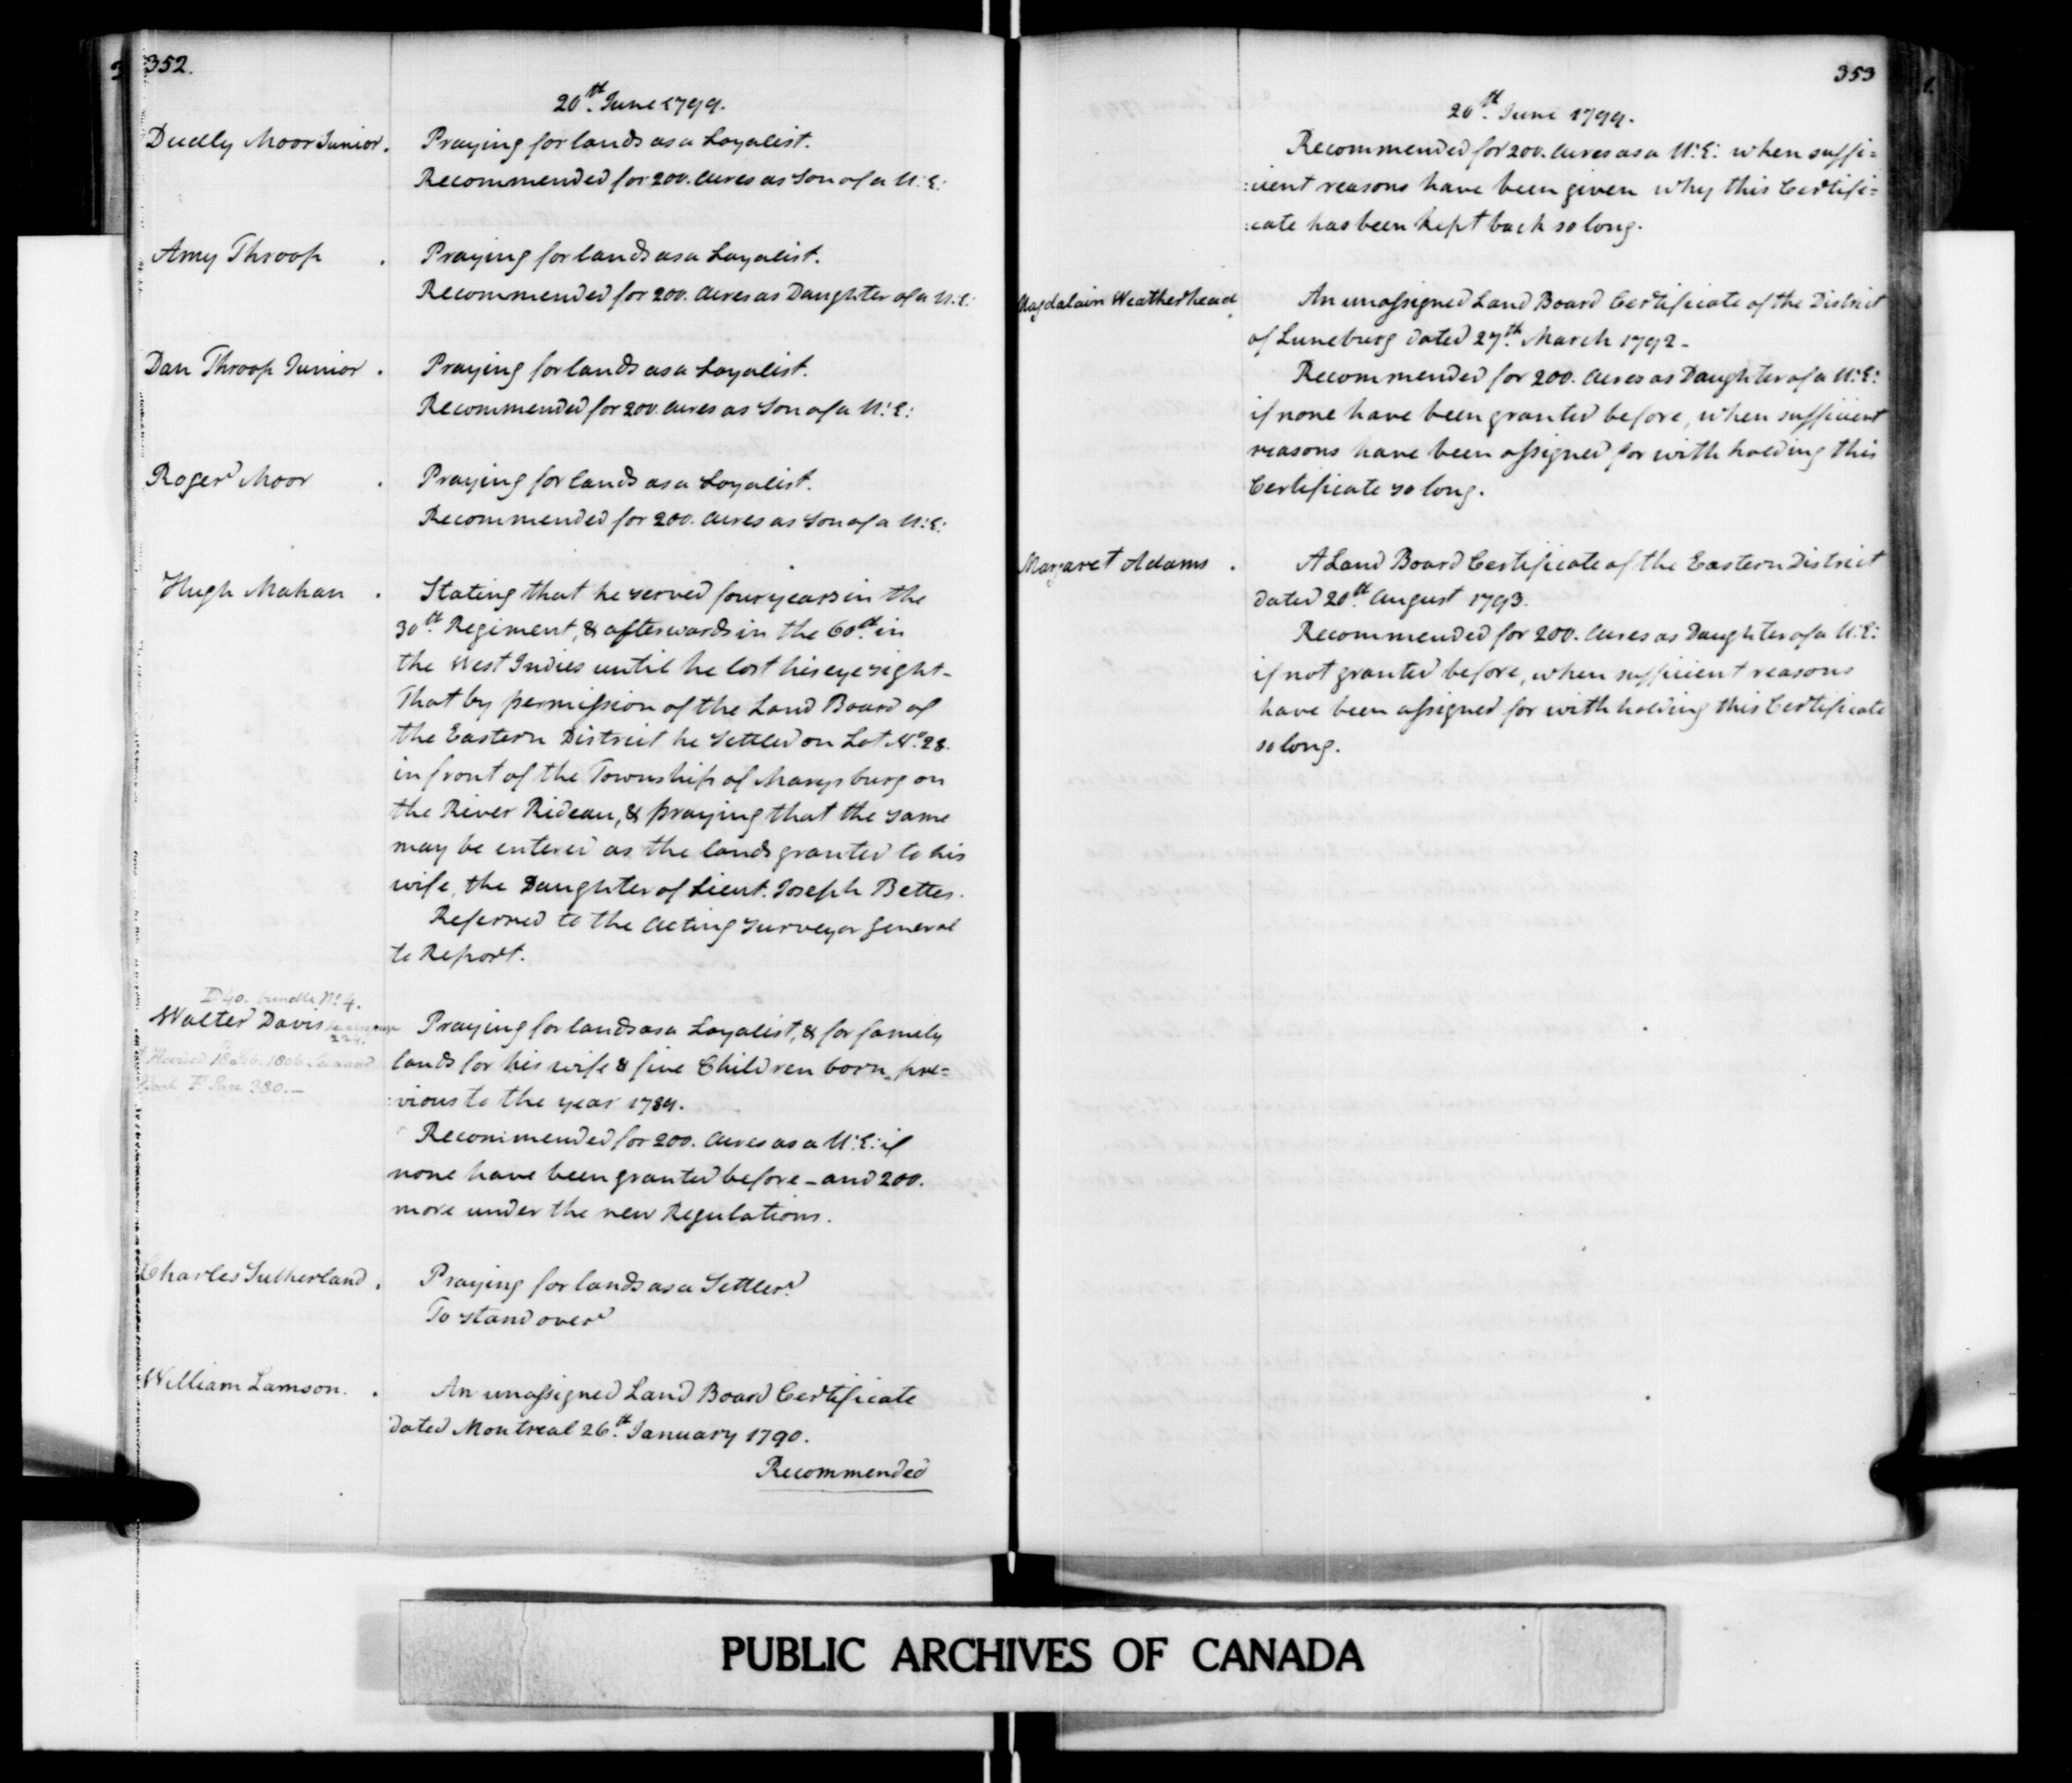 352.
20th. June 1799.
Dudly Moor Junior. Praying for lands as a Loyalist.
Recommended for 200. Acres as Son of a U:E:
Amy Throop . Praying for lands as a Loyalist.
Recommended for 200. Acres as Daughter of a U.E:
Dan Throop Junior . Praying for lands as a Loyalist.
Recommended for 200. Acres as Son of a U:E:
Roger Moor . Praying for lands as a Loyalist.
Recommended for 200. Acres as Son of a U:E:
Hugh Mahan . Stating that he served four years in the
30th. Regiment, & afterwards in the 60th. in
the West Indies until he lost his eye sight-
That by permission of the Land Board of
the Eastern District he Settled on Lot No. 28.
in front of the Township of Marysburg on
the River Rideau, & praying that the same
may be entered as the lands granted to his
wife, the Daughter of Lieut. Joseph Bettes.
Referred to the Acting Surveyor General
to Report.
D 40. bundle No. 4.
Walter Davis Praying for lands as a Loyalist, & for family
224.
18 Feb. 1806. lands for his wife & five Children born pre=
Book F Page 380.-
:vious to the year 1789.
Recommended for 200. Acres as a U:E: if
none have been granted before - and 200.
more under the new Regulations.
Charles Sutherland . Praying for lands as a Settler.
To stand over
William Lamson. . An unassigned Land Board Certificate
dated Montreal 26th. January 1790.
Recommended
353
20th. June 1799.
Recommended for 200. Acres as a U:E: when suffi=
:cient reasons have been given why this Certifi=
:cate has been kept back so long.
Magdalain Weatherhead. An unassigned Land Board Certificate of the District
of Luneburg dated 27th. March 1792-
Recommended for 200. Acres as Daughter of a U:E:
if none have been granted before, when sufficient
reasons have been assigned for with holding this
Certificate so long.
Margaret Adams . A Land Board Certificate of the Eastern District
dated 20th. August 1793.
Recommended for 200. Acres as Daughter of a U:E:
if not granted before, when sufficient reasons
have been assigned for with holding this Certificate
so long.
PUBLIC ARCHIVES OF CANADA